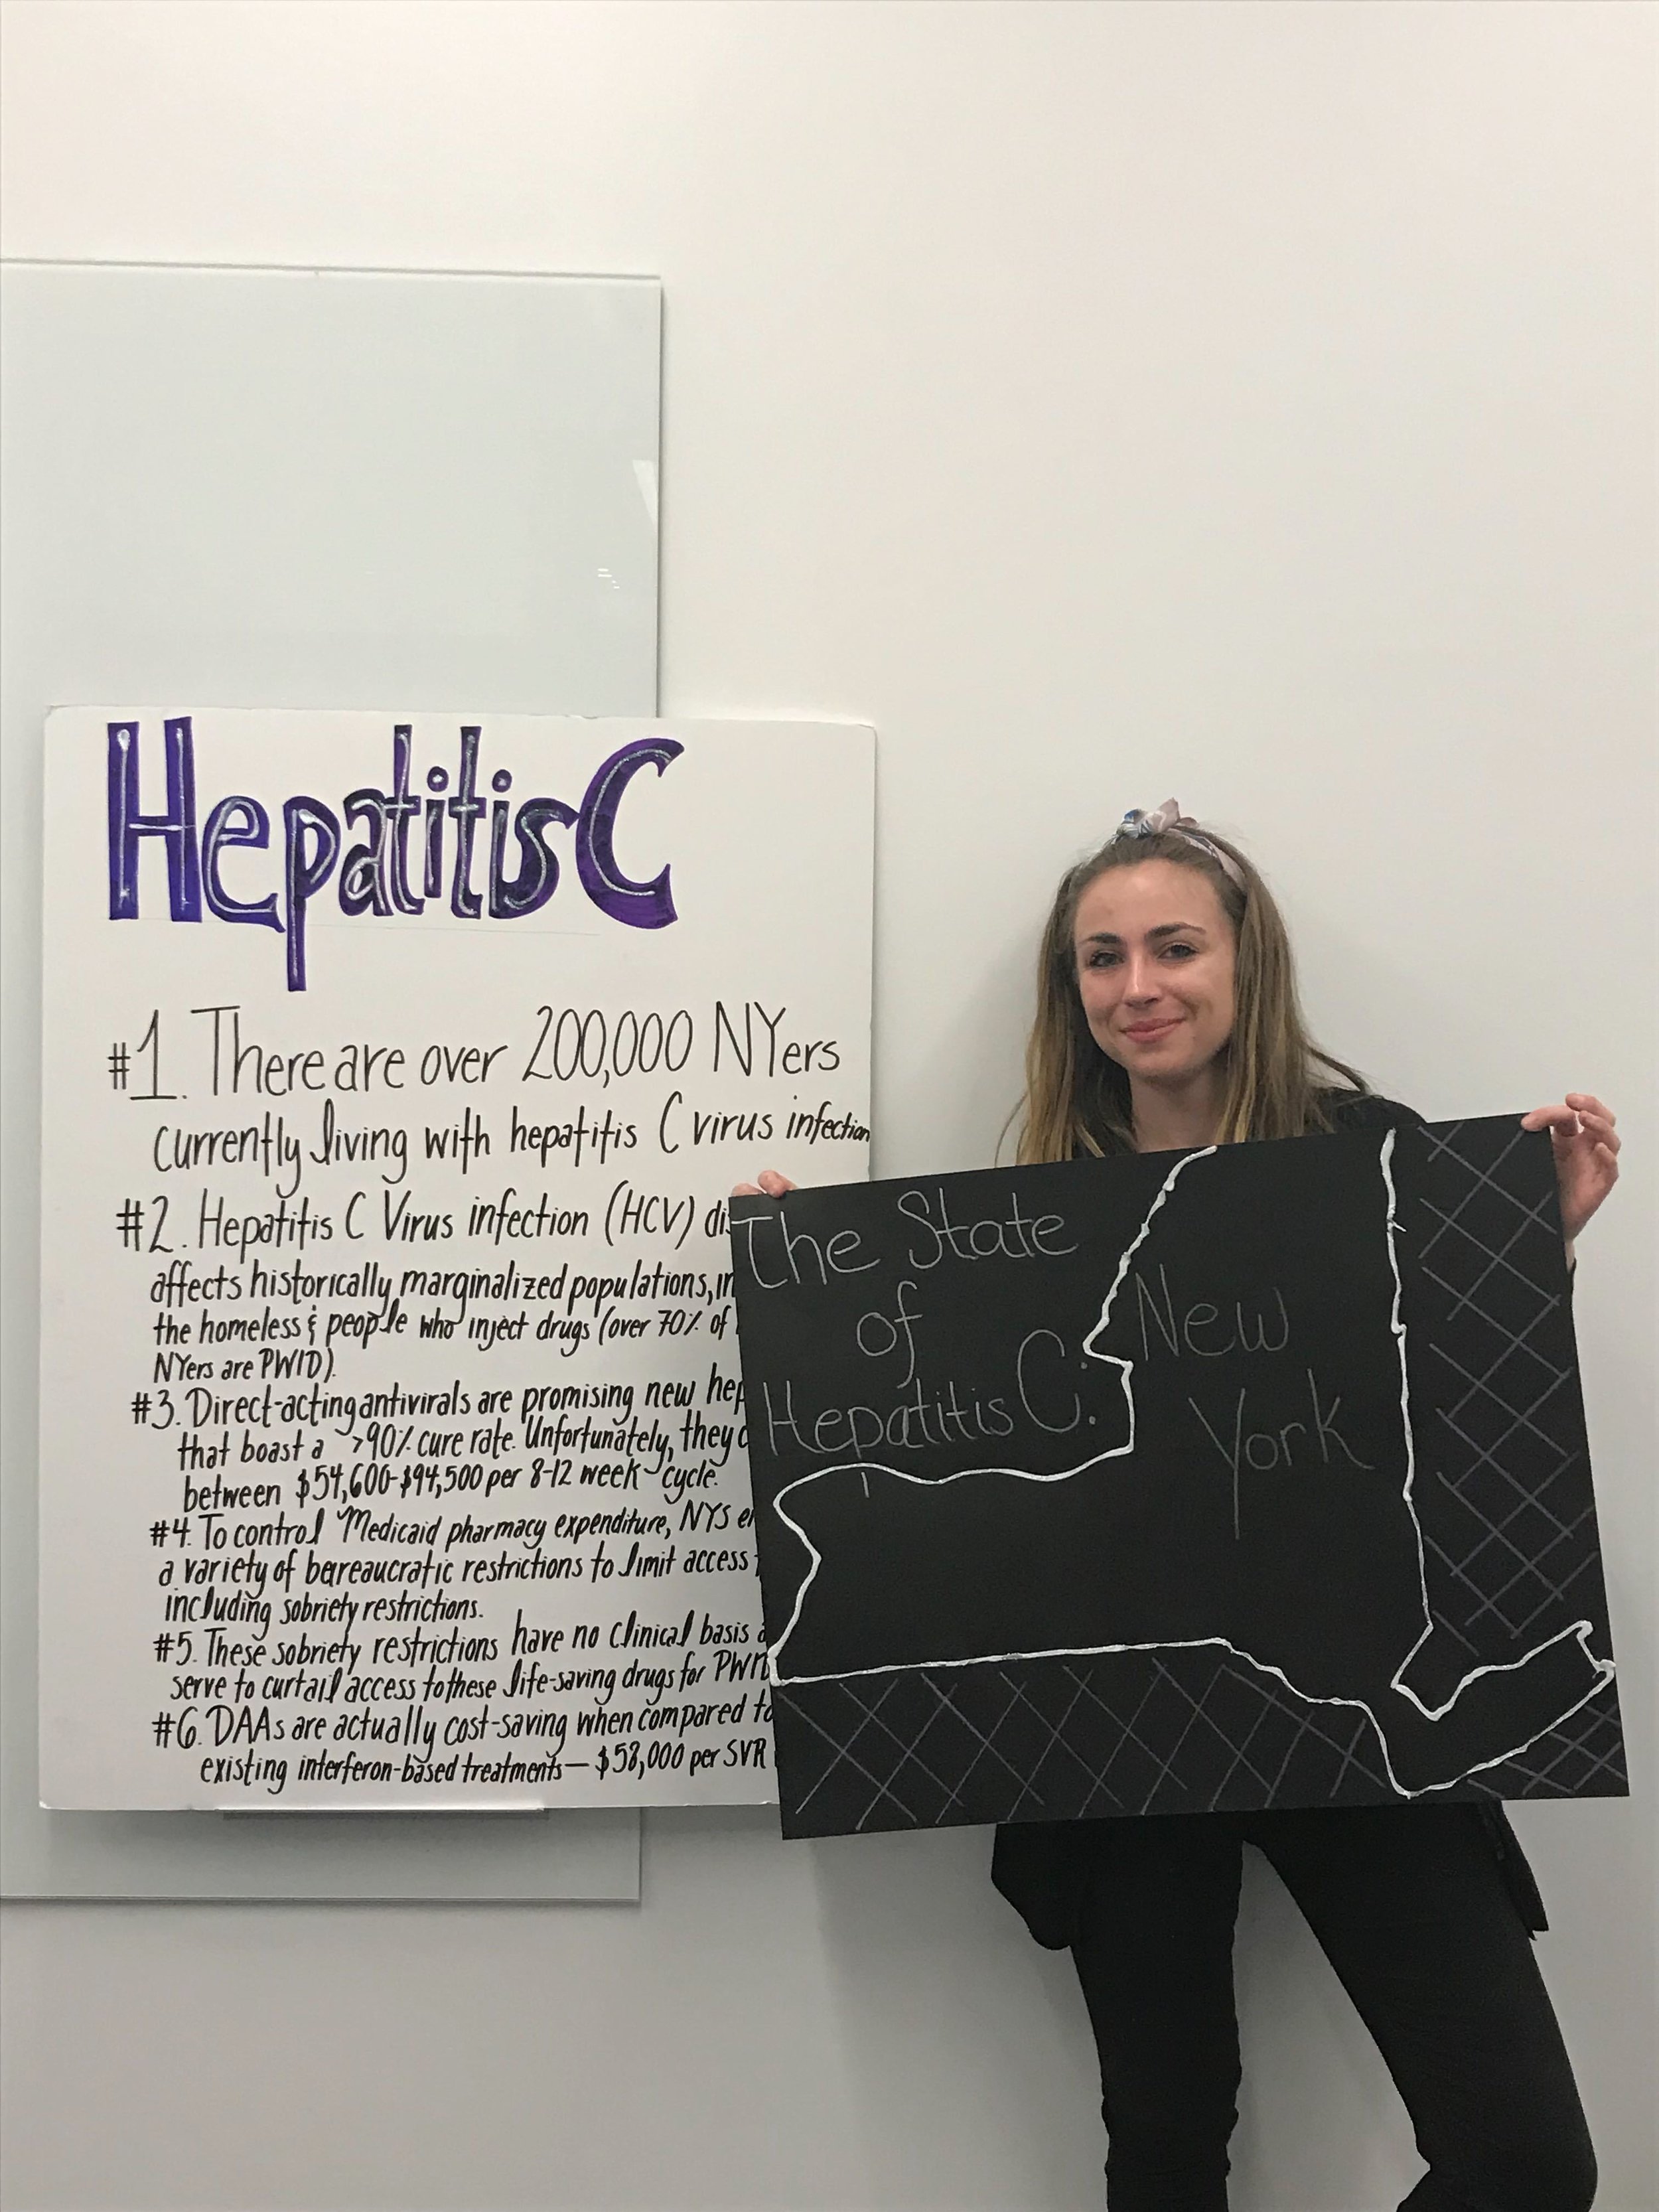 Hepatitis C
#1. There are over 200,000 NYers
currently living with hepatitis C virus infection
#2. Hepatitis C Virus infection (HCV)
affects historically marginalized populations,
the homeless & people who inject drugs (over 70% of
NYers are PWID).
#3. Direct-acting antivirals are promising new
that boast a >90% cure rate. Unfortunately, they
between $54,600-$94,500 per 8-12 week cycle.
#4. To control Medicaid pharmacy expenditure, NYS
a variety of bereaucratic restrictions to limit access
including sobriety restrictions.
#5. These sobriety restrictions have no clinical basis
serve to curtail access to these life-saving drugs for PWID
#6. DAAs are actually cost-saving when compared to
existing interferon-based treatments — $58,000 per SVR
The State
of
Hepatitis C:
New
York